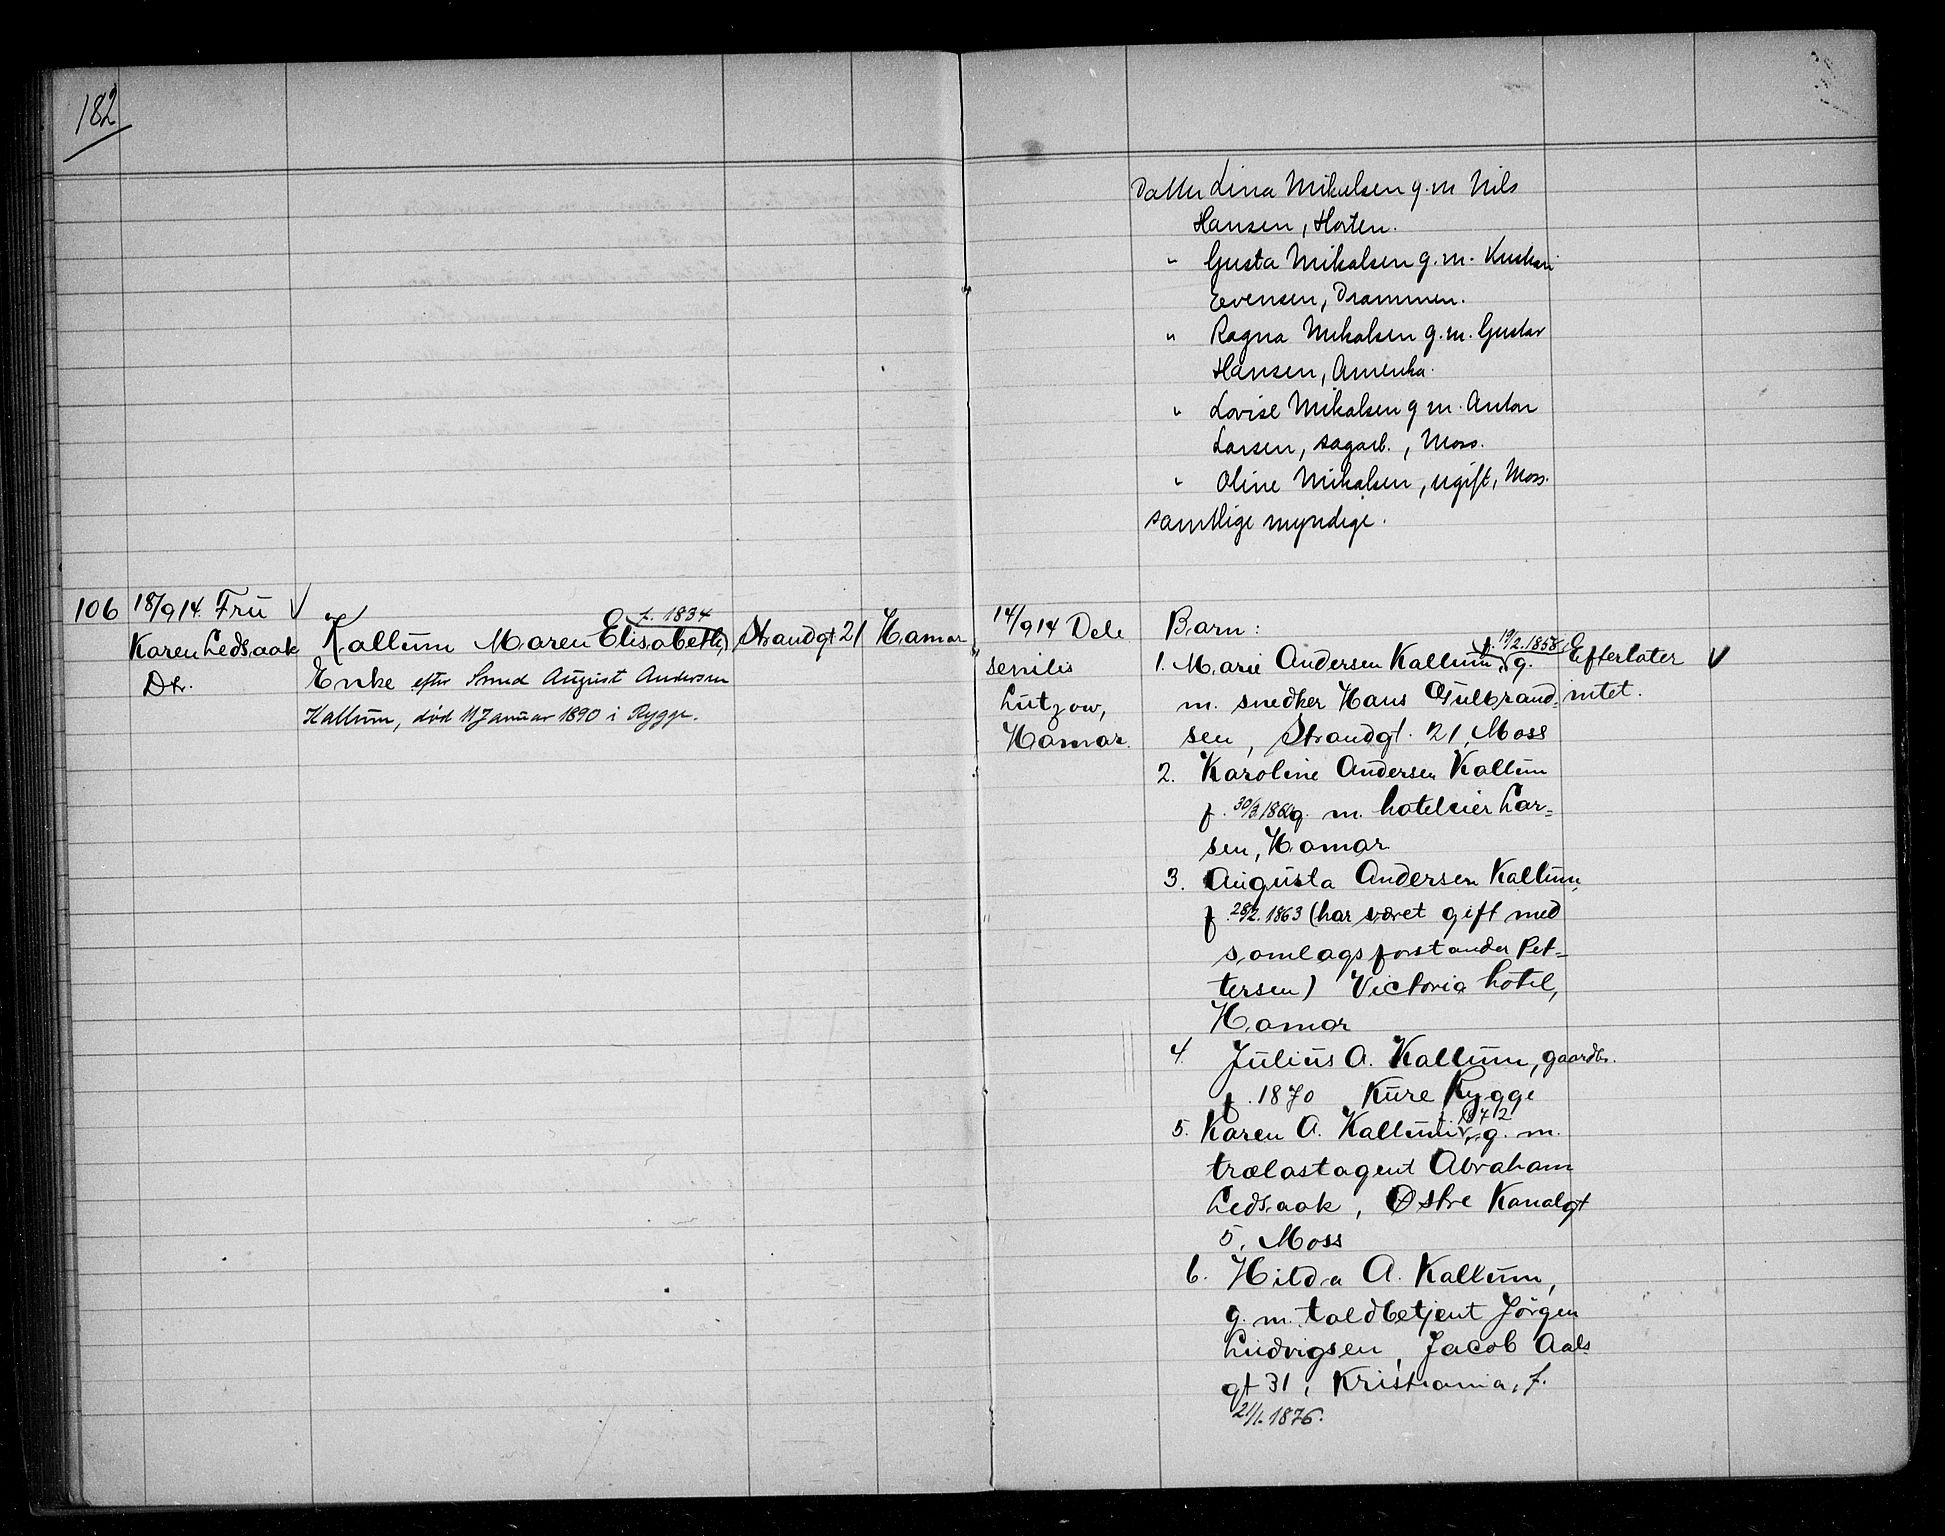 182
Datter Lina Mikalsen g.m Nils
Hansen, Horten.
" Gusta Mikalsen g.m. Kristian
Evensen, Drammen.
" Ragna Mikalsen g.m. Gustav
Hansen, Amerika.
" Lovise Mikalsen g m. Anton
Larsen, sagarb., Moss.
" Oline Mikalsen, ugift, Moss.
samtlige myndige.
106 18/9 14. Fru √
Karen Ledsaak
Dtr.
f. 1834
Kallum Maren Elisabeth,
Enke efter Smed August Andersen
Kallum, død 11 Januar 1890 i Rygge.
Strandgt 21 Hamar
14/9 14 Dele
senilis
Lutzow,
Hamar.
Barn:
1. Marie Andersen Kallum, f. 19/2.1858, g.
m. snedker Hans Gulbrand=
sen, Strandgt. 21, Moss
2. Karoline Andersen Kallum
f. 30/3 186 g. m. hoteleier Lar=
sen, Hamar
3. Augusta Andersen Kallum,
f 28/2. 1863 (har været gift med
samlagsforstander Pet=
tersen) Victoria hotel,
Hamar
4. Julius A. Kallum, gaardbr.
f. 1870 Kure Rygge
5. Karen A. Kallum, 1872 g. m.
trælastagent Abraham
Ledsaak, Østre Kanalgt
5, Moss
6. Hilda A. Kallum,
g. m. toldbetjent Jörgen
Ludvigsen, Jacob Aals
gt 31, Kristiania, f.
21/1. 1876.
Efterlater √
intet.